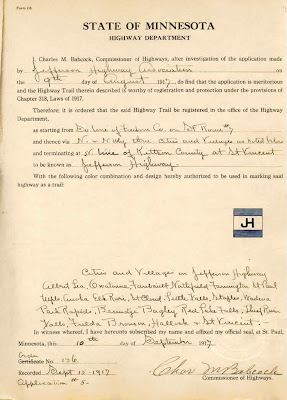 Form 116
STATE OF MINNESOTA
HIGHWAY DEPARTMENT
I, Charles M. Babcock, Commissioner of Highways, after investigation of the application made
by Jefferson Highway Association
on the 9th day of August 1917, do find that the application is meritorious
and the Highway Trail therein described is worthy of registration and protection under the provisions of
Chapter 318, Laws of 1917.
Therefore, it is ordered that the said Highway Trail be registered in the office of the Highway
Department,
as starting from So. line of Co. on St Road #7
and thence via N. & N Wly thru Cities and Villages as noted below
and terminating at N. line of Kittson County at St Vincent
to be known as Jefferson Highway.
With the following color combination and design hereby authorized to be used in marking said
highway as a trail:
JH
Cities and Villages on Jefferson Highway
Albert Lea, Owatonna, Faribault, Northfield, Farmington, St Paul
Mpls, Anoka, Elk River, St Cloud, Little Falls, Staples, Wadena
Park Rapids, Bemidji, Bagley, Red Lake Falls, Thief River
Falls, Bronson, Hallock & St Vincent.
In witness whereof, I have hereunto subscribed my name and affixed my official seal, at St. Paul,
Minnesota, this 10th day of September 1917
Order
Certificate No. 136
Recorded Sept 15-1917
Application # 5-
Chas M Babcock
Commissioner of Highways.